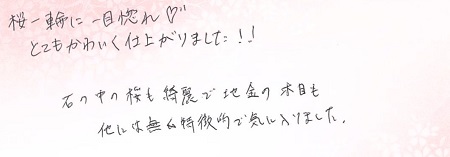 桜一輪に一目惚れ♡
とてもかわいく仕上がりました!!
石の中の桜も綺麗で地金の木目も
他には無い特徴的で気に入りました。